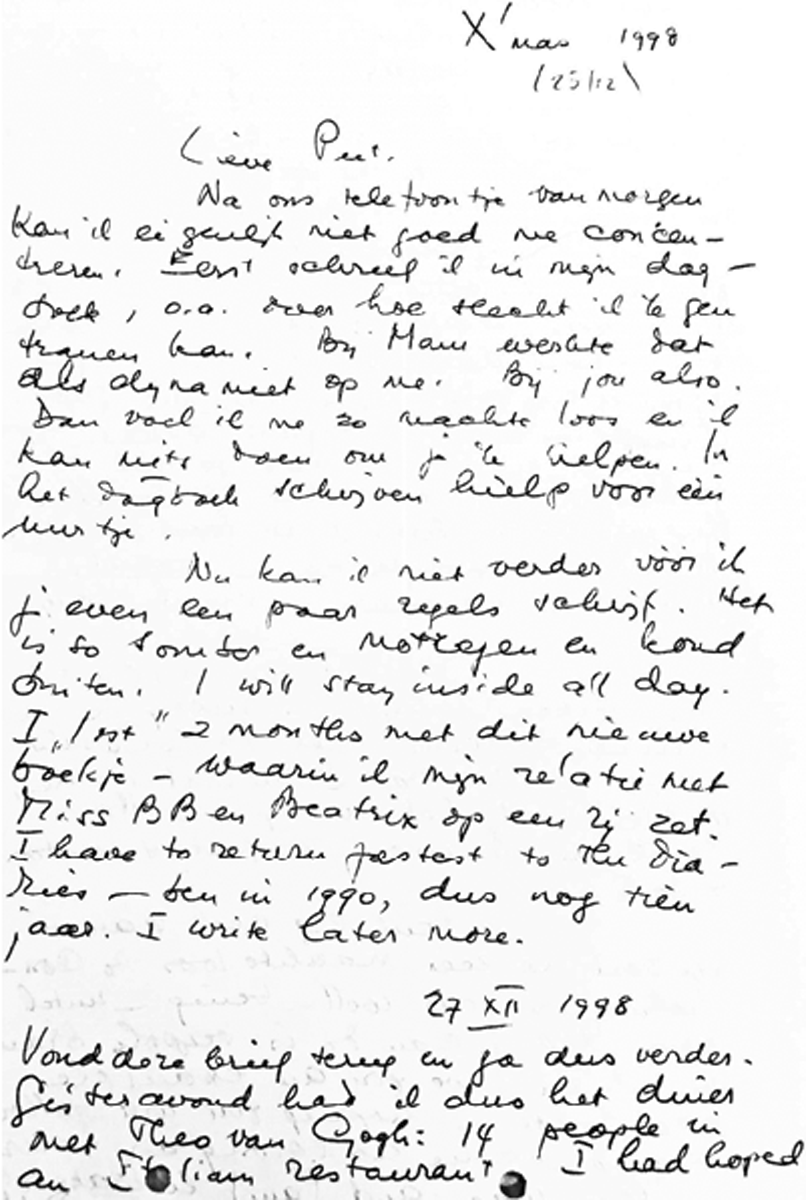 X'mas 1998
(25/12)
Lieve Peet.
Na ons telefoontje van morgen
kan ik eigenlijk niet goed me concen-
treren. Eerst schreef ik in mijn dag-
boek, o.a. over hoe slecht ik tegen
tranen kan. Bij Mam werkte dat
als dynamiet op me. Bij jou also.
Dan voel ik me zo machteloos en ik
kan niets doen om je te helpen. In
het dagboek schrijven hielp voor één
uurtje.
Nu kan ik niet verder vóór ik
je even een paar regels schrijf. Het
is so somber en motregen en koud
buiten. I will stay inside all day.
I „lost" 2 months met dit nieuwe
boekje – waarin ik mijn relatie met
Miss BB en Beatrix op een rij zet.
I have to return fastest to the Dia-
ries – ben in 1990, dus nog tien
jaar. I write later more.
27 XII 1998
Vond deze brief terug en ga dus verder.
Gisteravond had ik dus het diner
met Theo van Gogh: 14 people in
an Italian restaurant. I had hoped